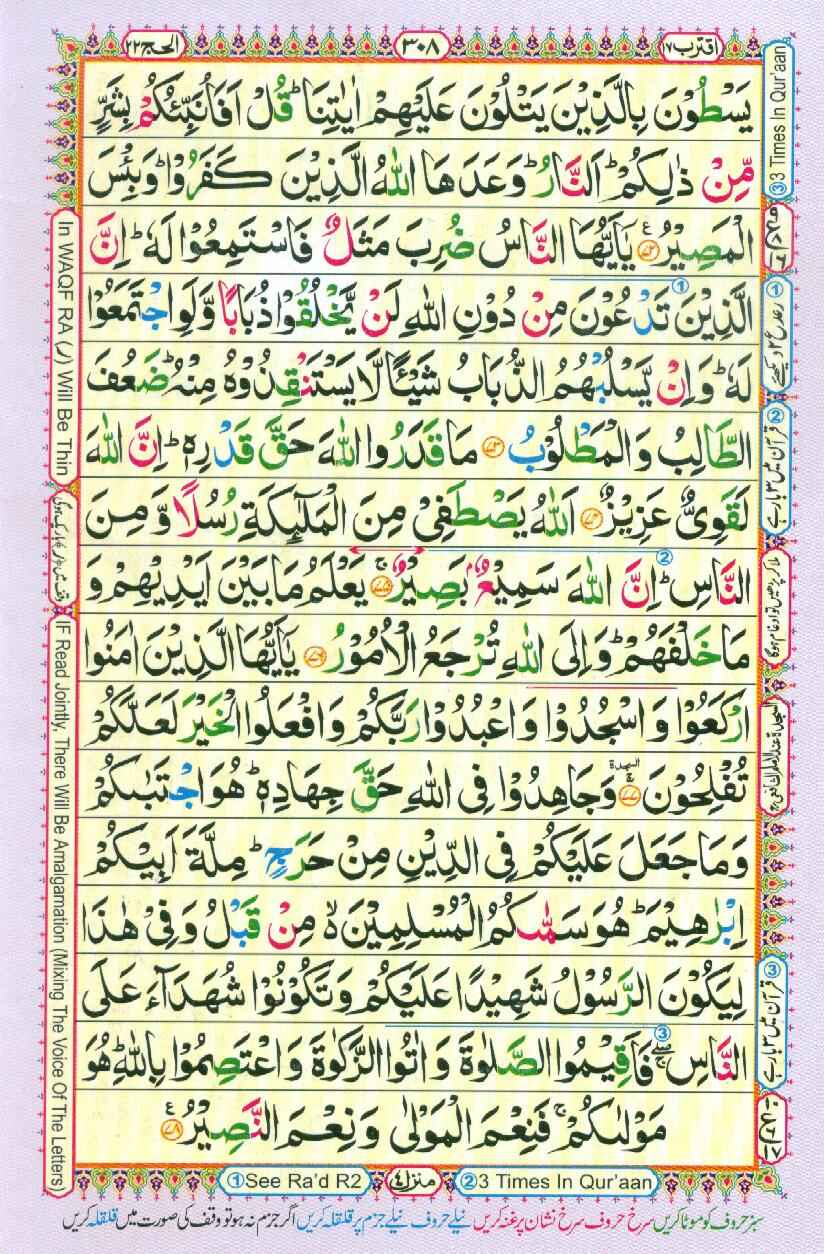 اقترب ١٧
٣٠٨
الحج ٢٢
يَسْطُوْنَ بِالَّذِيْنَ يَتْلُوْنَ عَلَيْهِمْ اٰيٰتِنَا ؕ قُلْ اَفَاُنَبِّئُكُمْ بِشَرٍّ
مِّنْ ذٰلِكُمْ ؕ اَلنَّارُ ؕ وَعَدَهَا اللّٰهُ الَّذِيْنَ كَفَرُوْا ؕ وَبِئْسَ
الْمَصِيْرُ ﴿۷۲﴾ يٰۤاَيُّهَا النَّاسُ ضُرِبَ مَثَلٌ فَاسْتَمِعُوْا لَهٗ ؕ اِنَّ
الَّذِيْنَ تَدْعُوْنَ مِنْ دُوْنِ اللّٰهِ لَنْ يَّخْلُقُوْا ذُبَابًا وَّلَوِ اجْتَمَعُوْا
لَهٗ ؕ وَاِنْ يَّسْلُبْهُمُ الذُّبَابُ شَيْـًٔا لَّا يَسْتَنْقِذُوْهُ مِنْهُ ؕ ضَعُفَ
الطَّالِبُ وَالْمَطْلُوْبُ ﴿۷۳﴾ مَا قَدَرُوا اللّٰهَ حَقَّ قَدْرِهٖ ؕ اِنَّ اللّٰهَ
لَقَوِيٌّ عَزِيْزٌ ﴿۷۴﴾ اَللّٰهُ يَصْطَفِيْ مِنَ الْمَلٰٓئِكَةِ رُسُلًا وَّمِنَ
النَّاسِ ؕ اِنَّ اللّٰهَ سَمِيْعٌۢ بَصِيْرٌ ﴿۷۵﴾ ۚ يَعْلَمُ مَا بَيْنَ اَيْدِيْهِمْ وَ
مَا خَلْفَهُمْ ؕ وَاِلَى اللّٰهِ تُرْجَعُ الْاُمُوْرُ ﴿۷۶﴾ يٰۤاَيُّهَا الَّذِيْنَ اٰمَنُوا
ارْكَعُوْا وَاسْجُدُوْا وَاعْبُدُوْا رَبَّكُمْ وَافْعَلُوا الْخَيْرَ لَعَلَّكُمْ
تُفْلِحُوْنَ ﴿۷۷﴾ السجدة وَجَاهِدُوْا فِي اللّٰهِ حَقَّ جِهَادِهٖ ؕ هُوَ اجْتَبٰىكُمْ
وَمَا جَعَلَ عَلَيْكُمْ فِي الدِّيْنِ مِنْ حَرَجٍ ؕ مِلَّةَ اَبِيْكُمْ
اِبْرٰهِيْمَ ؕ هُوَ سَمّٰىكُمُ الْمُسْلِمِيْنَ ۙ مِنْ قَبْلُ وَفِيْ هٰذَا
لِيَكُوْنَ الرَّسُوْلُ شَهِيْدًا عَلَيْكُمْ وَتَكُوْنُوْا شُهَدَآءَ عَلَى
النَّاسِ ۖۚ فَاَقِيْمُوا الصَّلٰوةَ وَاٰتُوا الزَّكٰوةَ وَاعْتَصِمُوْا بِاللّٰهِ ؕ هُوَ
مَوْلٰىكُمْ ۚ فَنِعْمَ الْمَوْلٰى وَنِعْمَ النَّصِيْرُ ﴿۷۸﴾
① See Ra'd R2
منزل ٤
② 3 Times In Qur'aan
سبز حروف کو موٹا کریں سرخ حروف سرخ نشان پر غنہ کریں نیلے حروف نیلے جزم پر قلقلہ کریں اگر جزم نہ ہو تو وقف کی صورت میں قلقلہ کریں
③ 3 Times In Qur'aan
② قرآن میں ۳ بار ہے
③ قرآن میں ۳ بار ہے
In WAQF RA (ر) Will Be Thin
IF Read Jointly, There Will Be Amalgamation (Mixing The Voice Of The Letters)